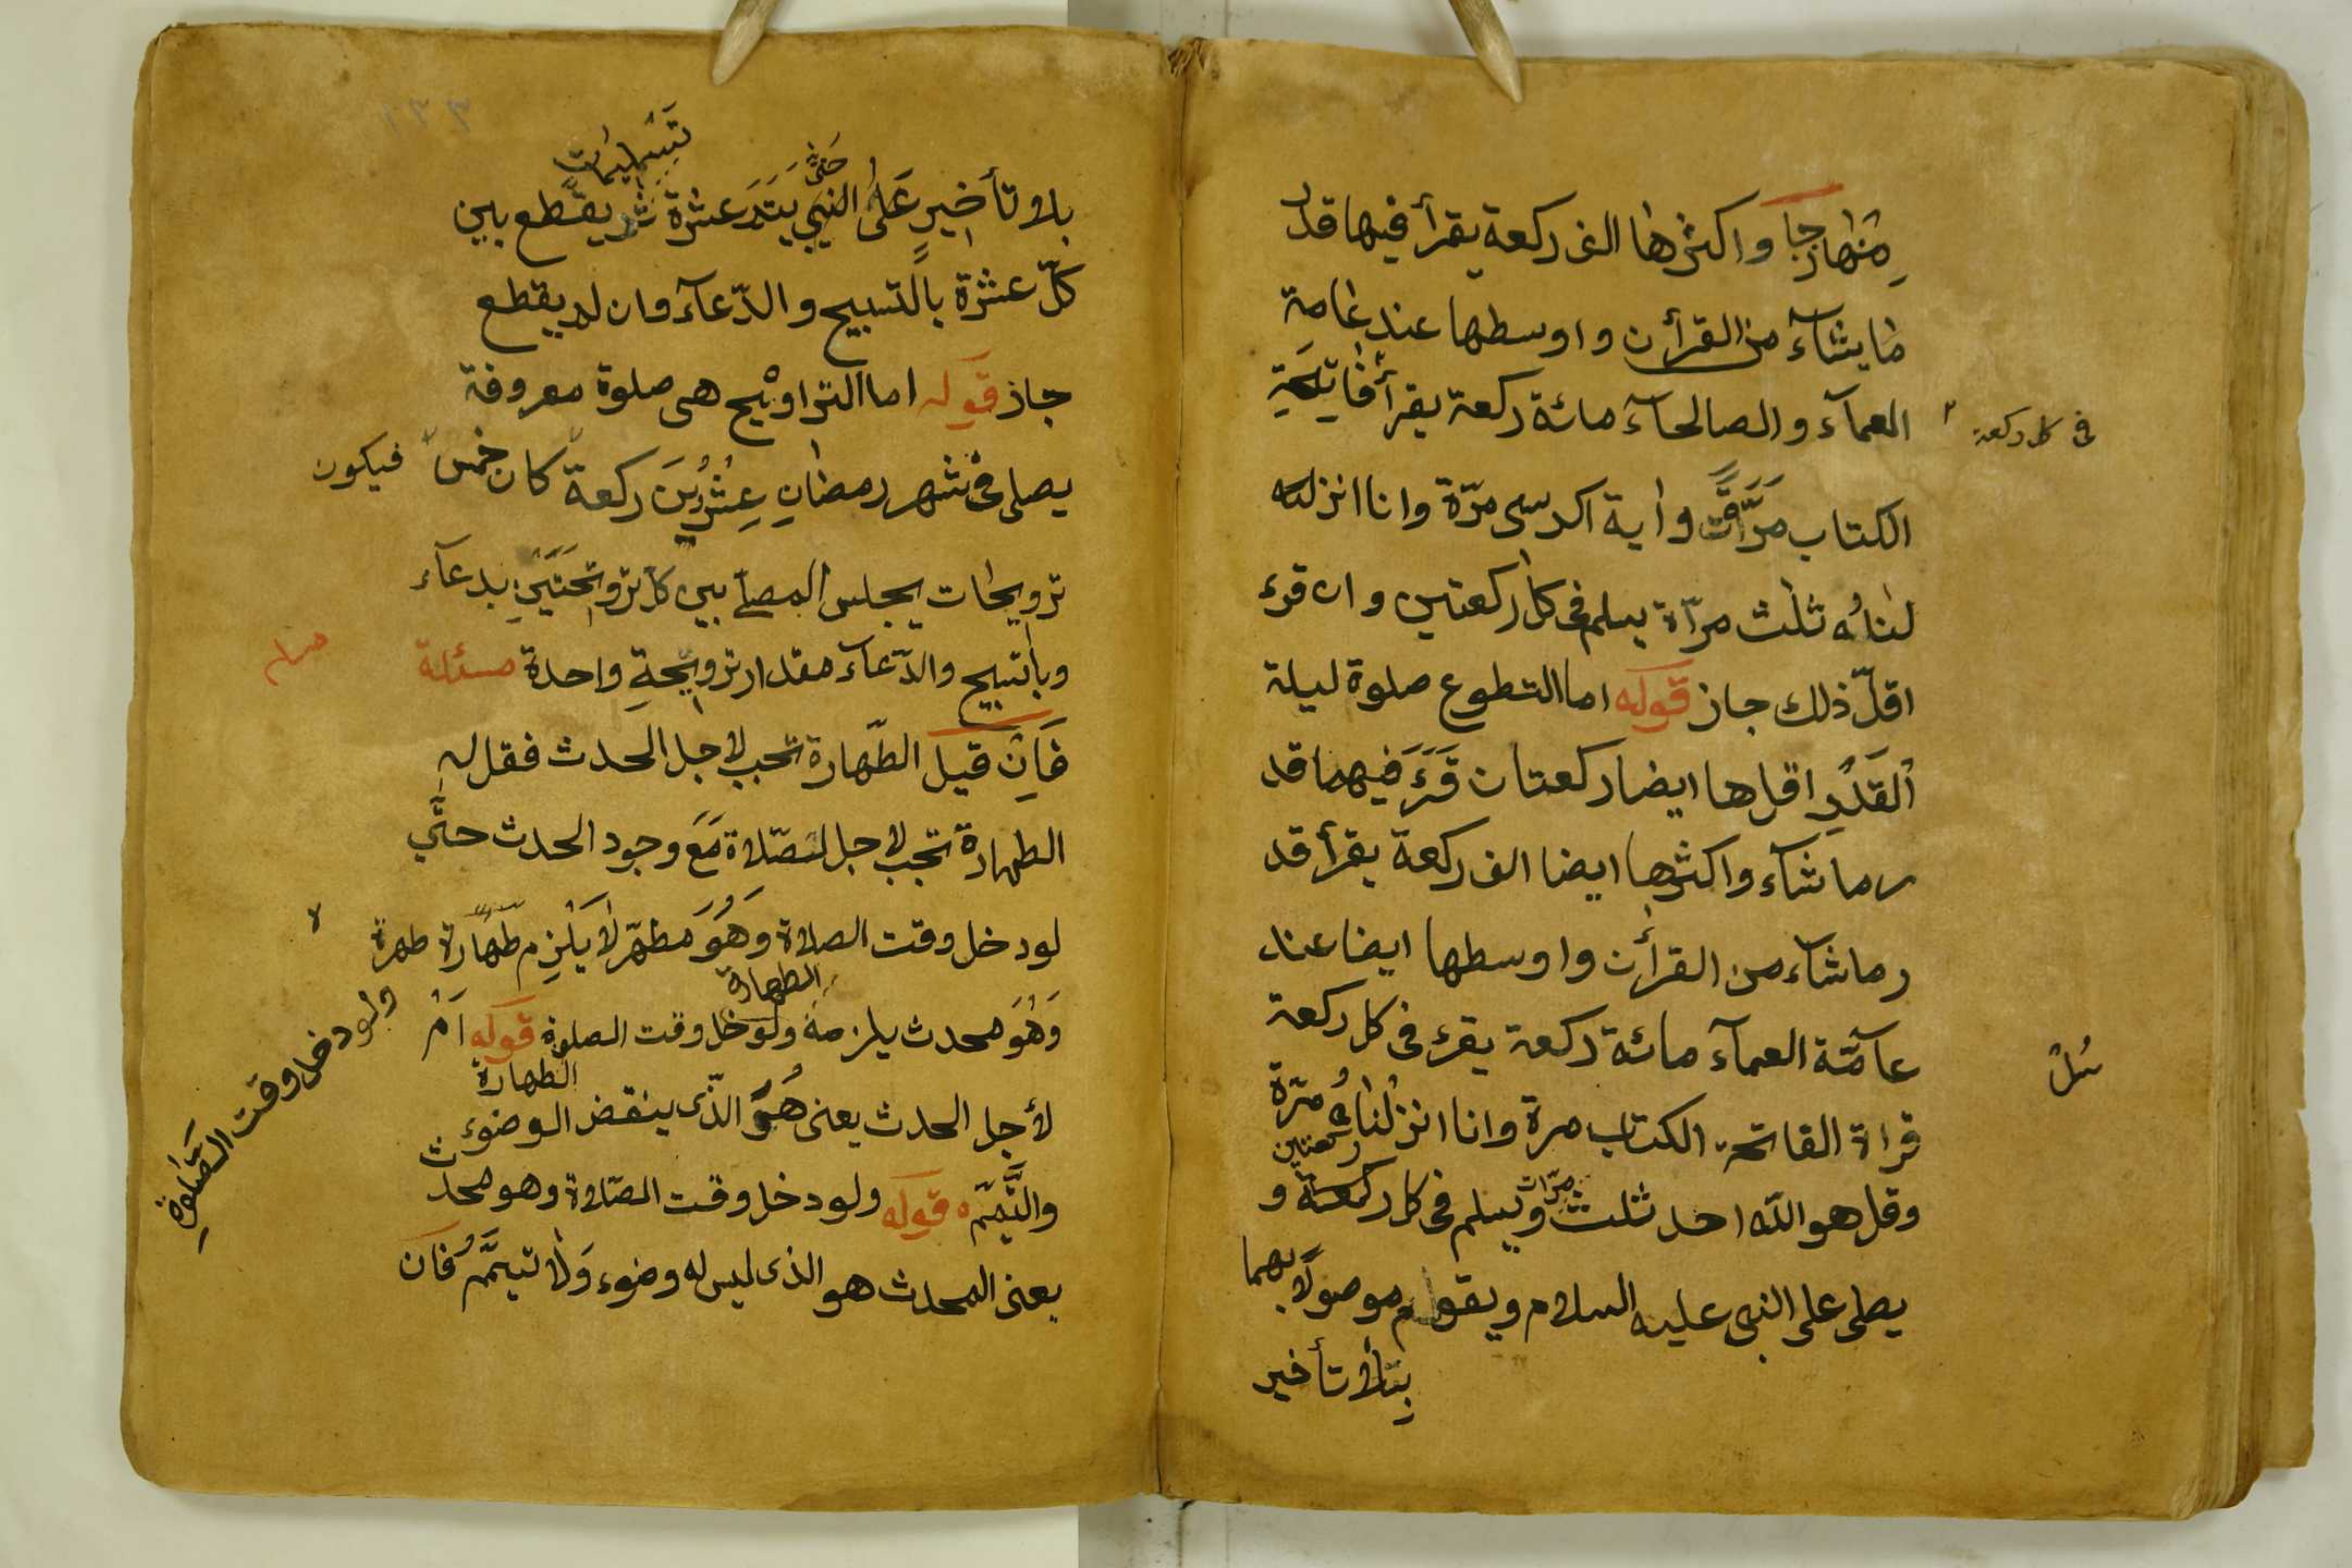 منهارجا واكثرها الف ركعة يقرأ فيها قد
ما يشآء من القرأن واوسطها عند عامة
العمآء والصالحآء مائة ركعة يقرأ فاتحة
في كل ركعة
الكتاب مرّة واية الكرسى مرّة وانا انزلنه
لناه ثلث مرّاة يسلم فى كل ركعتين وان قرء
اقلّ ذلك جاز قوله اما التطوع صلوة ليلة
القدر اقلها ايضا ركعتان قرء فيهما قد
ر ما شآء واكثرها ايضا الف ركعة يقرأ قد
ر ما شآء من القرأن واوسطها ايضا عند
عآمّة العمآء مائة ركعة يقرئ فى كل ركعة
قراة الفاتحة الكتاب مرة وانا انزلناه مرّة
وقل هو اللّه احد ثلث مرّات ويسلم فى كل ركعة ركعتين و
يصلى على النبى عليه السلام ويقوم موصولا بهما
بلا تأخير
تسليمات
بلا تأخير على النبي حتى يتم عشرة ثم يقطع بين
كلّ عشرة بالتسبيح والدّعآء وان لم يقطع
جاز قوله اما التراويح هى صلوة معروفة
يصلى فى شهر رمضان عشرين ركعة كان خمس فيكون
ترويحات يجلس المصلّى بين كل ترويحتين بدعآء
وبالتبيح والدّعآء مقدار ترويحة واحدة مسئلة
فان قيل الطّهارة تجب لاجل الحدث فقل له
الطهارة تجب لاجل لصّلاة مع وجود الحدث حتّى
لو دخل وقت الصلاة وهو مطهّر لا يلزم طهارة طهرة
وهو محدث يلزمه الطهارة ولو دخل وقت الصلوة قوله ام
ولو دخل وقت الصّلوة
لأجل الحدث يعنى هو الّذى ينقض الطهارة الوضوء
والتّيمّم قوله ولو دخل وقت الصّلاة وهو محدث
يعنى المحدث هو الذى ليس له وضوء ولا تيمّم فان